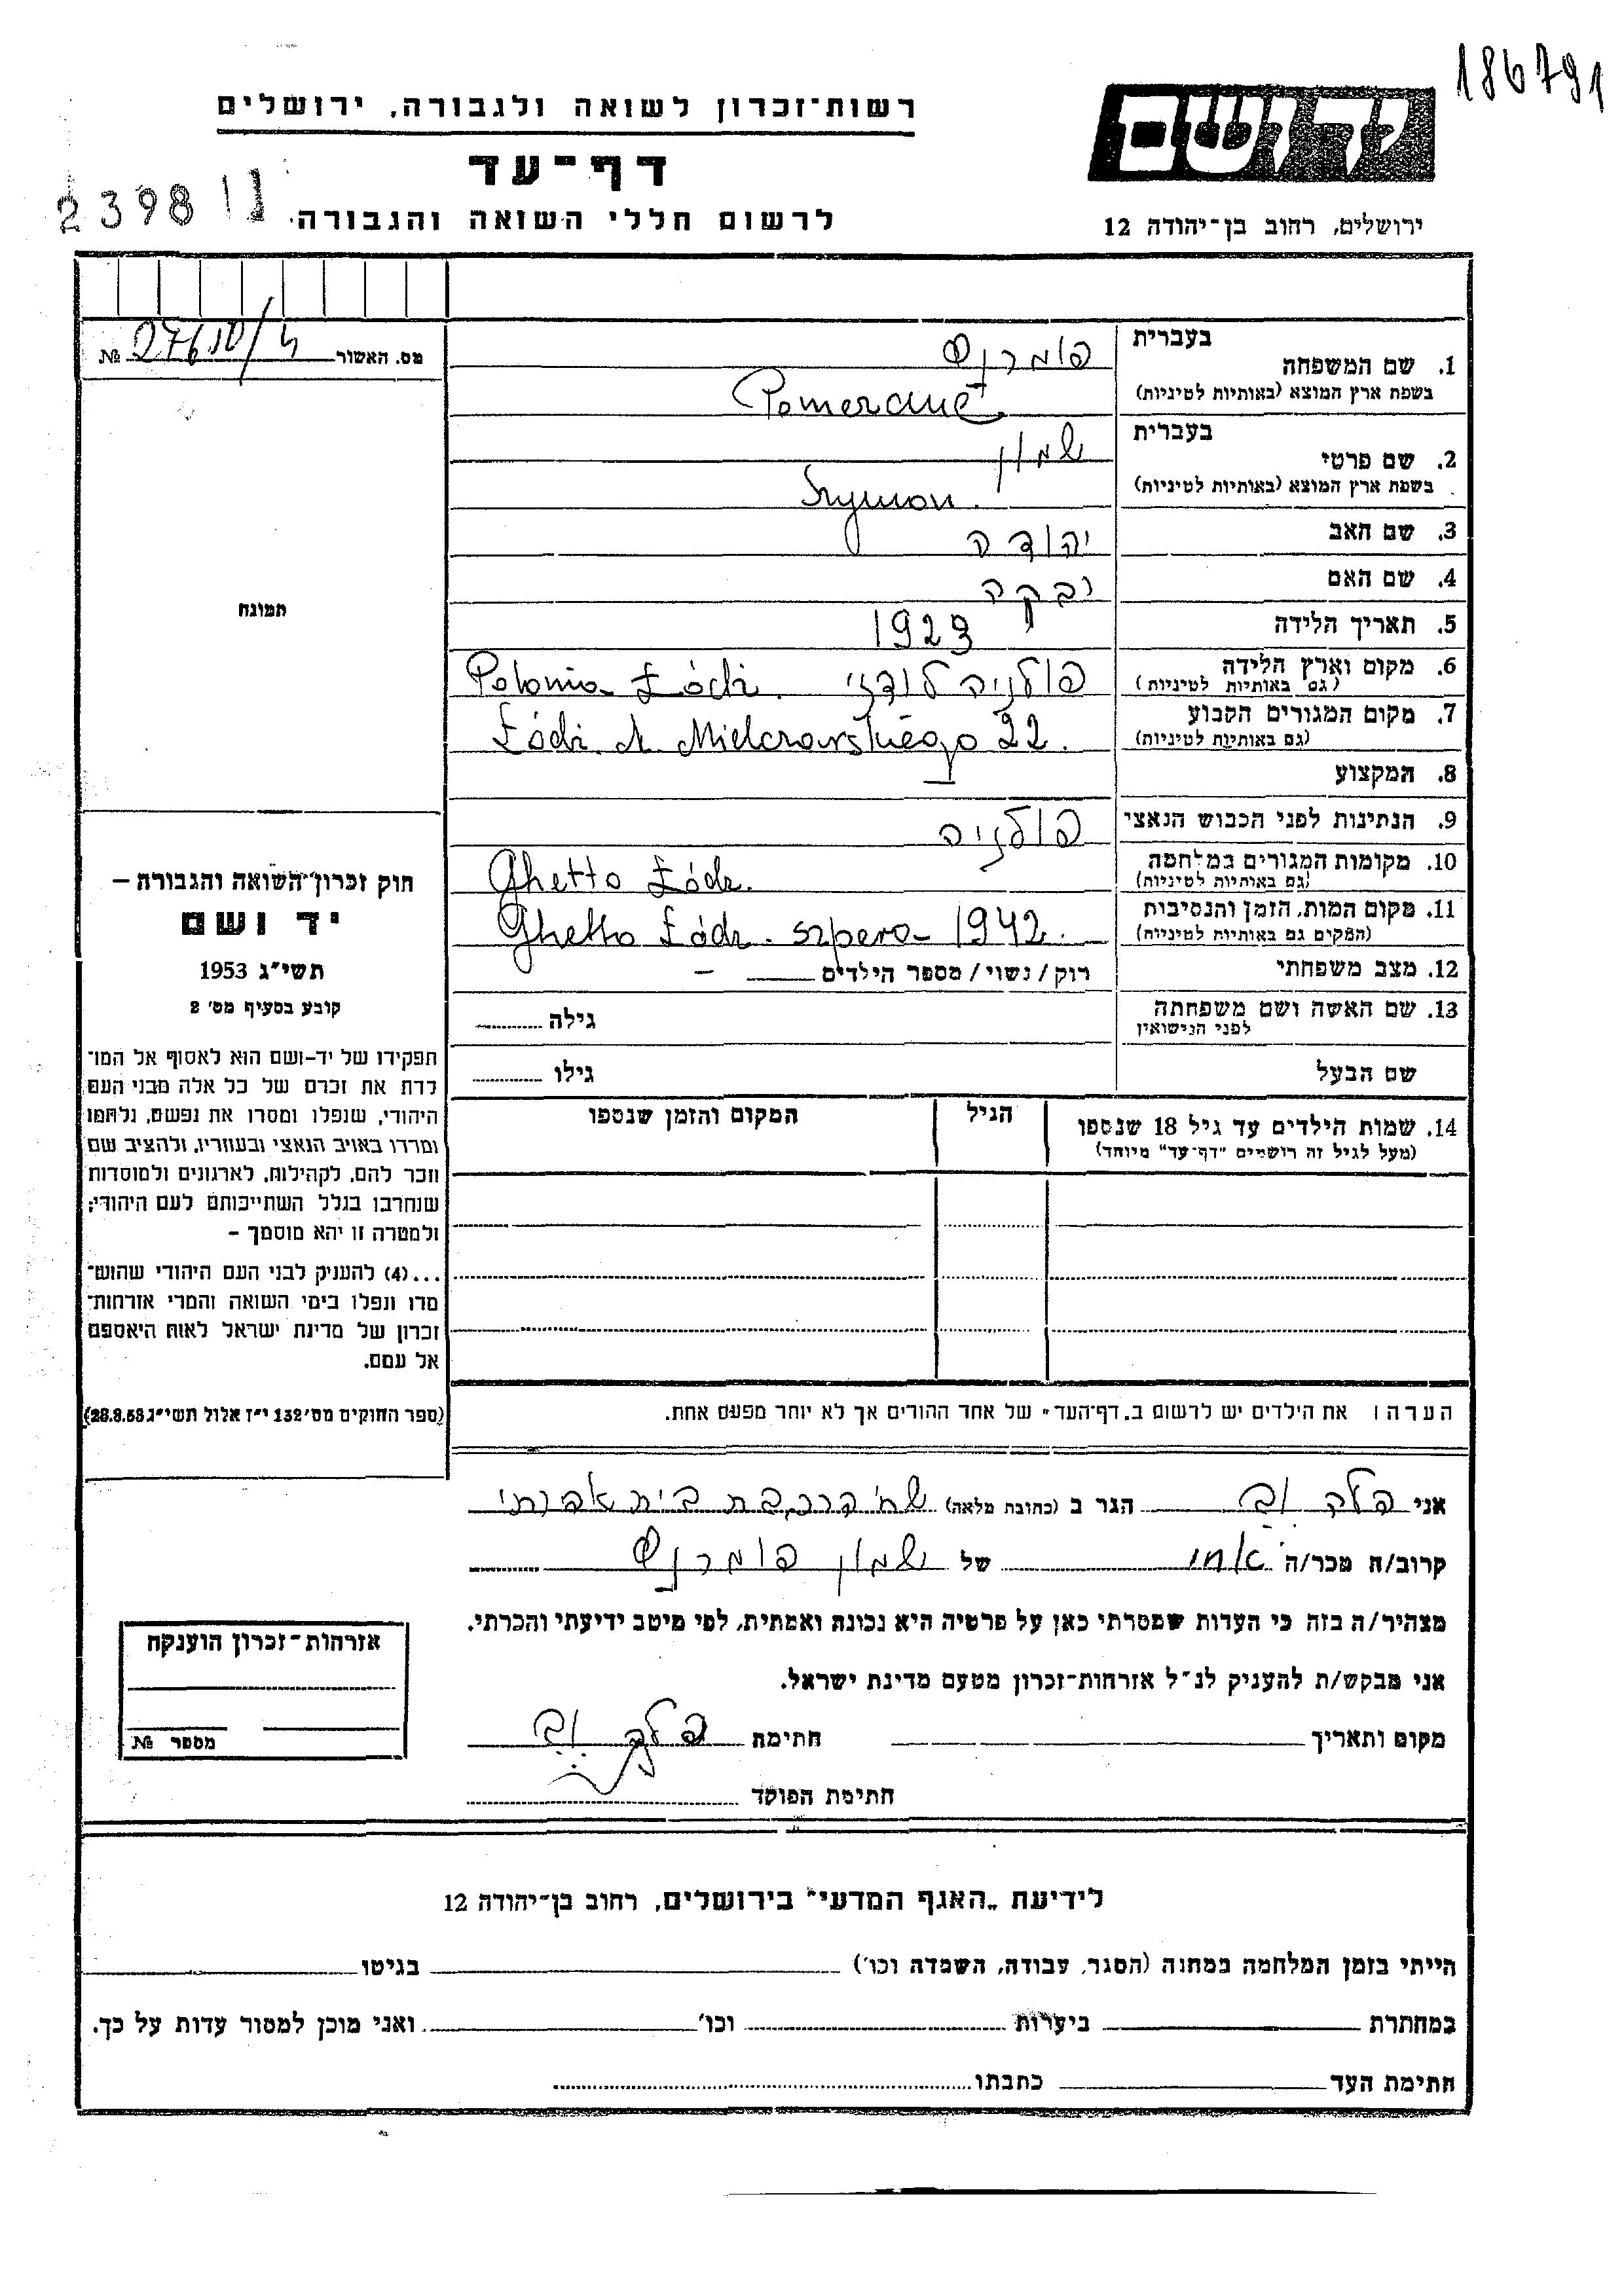 186791
רשות־זכרון לשואה ולגבורה, ירושלים
יד ושם
דף־עד
2398
לרשום חללי השואה והגבורה
ירושלים, רחוב בן־יהודה 12
מס. האשור №
1. שם המשפחה בעברית פומרנץ
בשפת ארץ המוצא (באותיות לטיניות)
2. שם פרטי בעברית שמעון
בשפת ארץ המוצא (באותיות לטיניות) Szymon.
3. שם האב יהודה
4. שם האם
5. תאריך הלידה 1923
6. מקום וארץ הלידה פולניה לודז׳ Polonia Łódź.
(גם באותיות לטיניות)
7. מקום המגורים הקבוע Łódź. Mielczarskiego 22.
(גם באותיות לטיניות)
8. המקצוע —
9. הנתינות לפני הכבוש הנאצי פולניה
10. מקומות המגורים במלחמה Ghetto Łódz.
(גם באותיות לטיניות)
11. מקום המות, הזמן והנסיבות Ghetto Łódz. szpera - 1942.
(המקום גם באותיות לטיניות)
12. מצב משפחתי רוק / נשוי / מספר הילדים —
13. שם האשה ושם משפחתה גילה
לפני הנישואין
שם הבעל גילו
14. שמות הילדים עד גיל 18 שנספו הגיל המקום והזמן שנספו
(מעל לגיל זה רושמים "דף־עד" מיוחד)
הערה: את הילדים יש לרשום ב„דף־העד" של אחד ההורים אך לא יותר מפעם אחת.
תמונה
חוק זכרון־השואה והגבורה –
יד ושם
תשי״ג 1953
קובע בסעיף מס׳ 2
תפקידו של יד־ושם הוא לאסוף אל המו־
לדת את זכרם של כל אלה מבני העם
היהודי, שנפלו ומסרו את נפשם, נלחמו
ומרדו באויב הנאצי ובעוזריו, ולהציב שם
וזכר להם, לקהילות, לארגונים ולמוסדות
שנחרבו בגלל השתייכותם לעם היהודי;
ולמטרה זו יהא מוסמך –
...(4) להעניק לבני העם היהודי שהוש־
מדו ונפלו בימי השואה והמרי אזרחות־
זכרון של מדינת ישראל לאות היאספם
אל עמם.
(ספר החוקים מס׳ 132 י״ז אלול תשי״ג 28.8.53)
אני הגר ב (כתובת מלאה)
קרוב/ה מכר/ה של שמעון פומרנץ
מצהיר/ה בזה כי העדות שמסרתי כאן על פרטיה היא נכונה ואמתית, לפי מיטב ידיעתי והכרתי.
אני מבקש/ת להעניק לנ״ל אזרחות־זכרון מטעם מדינת ישראל.
מקום ותאריך חתימה
חתימת הפוקד
אזרחות־זכרון הוענקה
מספר №
לידיעת „האגף המדעי" בירושלים, רחוב בן־יהודה 12
הייתי בזמן המלחמה במחנה (הסגר, עבודה, השמדה וכו׳) בגיטו
במחתרת ביערות וכו׳ ואני מוכן למסור עדות על כך.
חתימת העד כתבתו